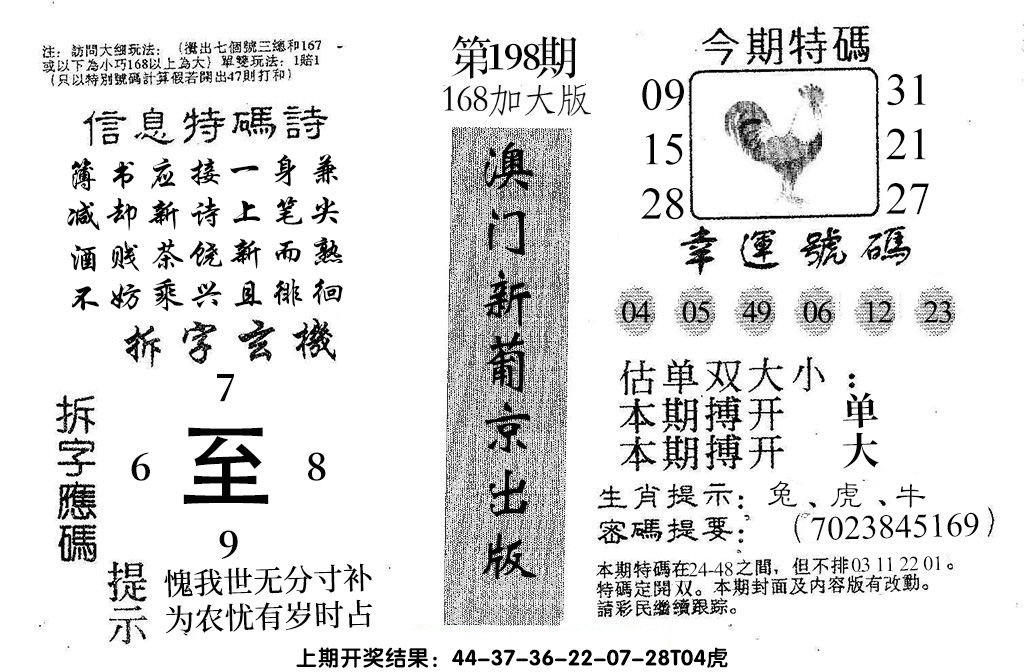 注：訪問大细玩法：（攪出七個號三總和167
或以下為小巧168以上為大）單雙玩法：1賠1
（只以特別號碼計算假若開出47則打和）
信息特碼詩
簿书应接一身兼
减却新诗上笔尖
酒贱茶饶新而熟
不妨乘兴且徘徊
拆字玄機
拆字應碼
7
6 至 8
9
提示
愧我世无分寸补
为农忧有岁时占
第198期
168加大版
澳门新葡京出版
今期特碼
09 31
15 21
28 27
幸運號碼
04 05 49 06 12 23
估单双大小：
本期搏开 单
本期搏开 大
生肖提示：兔、虎、牛
密碼提要：（7023845169）
本期特碼在24-48之間，但不排03 11 22 01。
特碼定開双。本期封面及内容版有改動。
請彩民繼續跟踪。
上期开奖结果：44-37-36-22-07-28T04虎